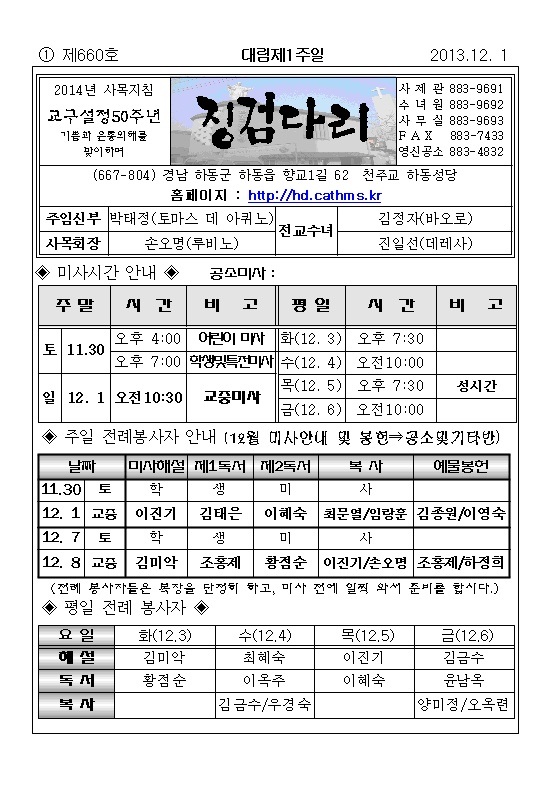 ① 제660호 대림제1주일 2013.12. 1
2014년 사목지침
교구설정50주년
기쁨과 은총의해를
맞이하며
징검다리
사 제 관 883-9691
수 녀 원 883-9692
사 무 실 883-9693
F A X 883-7433
영신공소 883-4832
(667-804) 경남 하동군 하동읍 향교1길 62 천주교 하동성당
홈페이지 : http://hd.cathms.kr
주임신부 박태정(토마스 데 아퀴노) 전교수녀 김정자(바오로)
사목회장 손오명(루비노) 진일선(데레사)
◈ 미사시간 안내 ◈ 공소미사 :
주 말 시 간 비 고 평 일 시 간 비 고
토 11.30 오후 4:00 어린이 미사 화(12. 3) 오후 7:30
오후 7:00 학생및특전미사 수(12. 4) 오전10:00
일 12. 1 오전10:30 교중미사 목(12. 5) 오후 7:30 성시간
금(12. 6) 오전10:00
◈ 주일 전례봉사자 안내 (12월 미사안내 및 봉헌⇒공소및기타반)
날짜 미사해설 제1독서 제2독서 복 사 예물봉헌
11.30 토 학 생 미 사
12. 1 교중 이진기 김태은 이혜숙 최문열/임랑훈 김종원/이영숙
12. 7 토 학 생 미 사
12. 8 교중 김미악 조홍제 황점순 이진기/손오명 조홍제/하정희
(전례 봉사자들은 복장을 단정히 하고, 미사 전에 일찍 와서 준비를 합시다.)
◈ 평일 전례 봉사자 ◈
요 일 화(12.3) 수(12.4) 목(12.5) 금(12.6)
해 설 김미악 최혜숙 이진기 김금수
독 서 황점순 이옥주 이혜숙 윤남옥
복 사 김금수/우경숙 양미정/오옥련